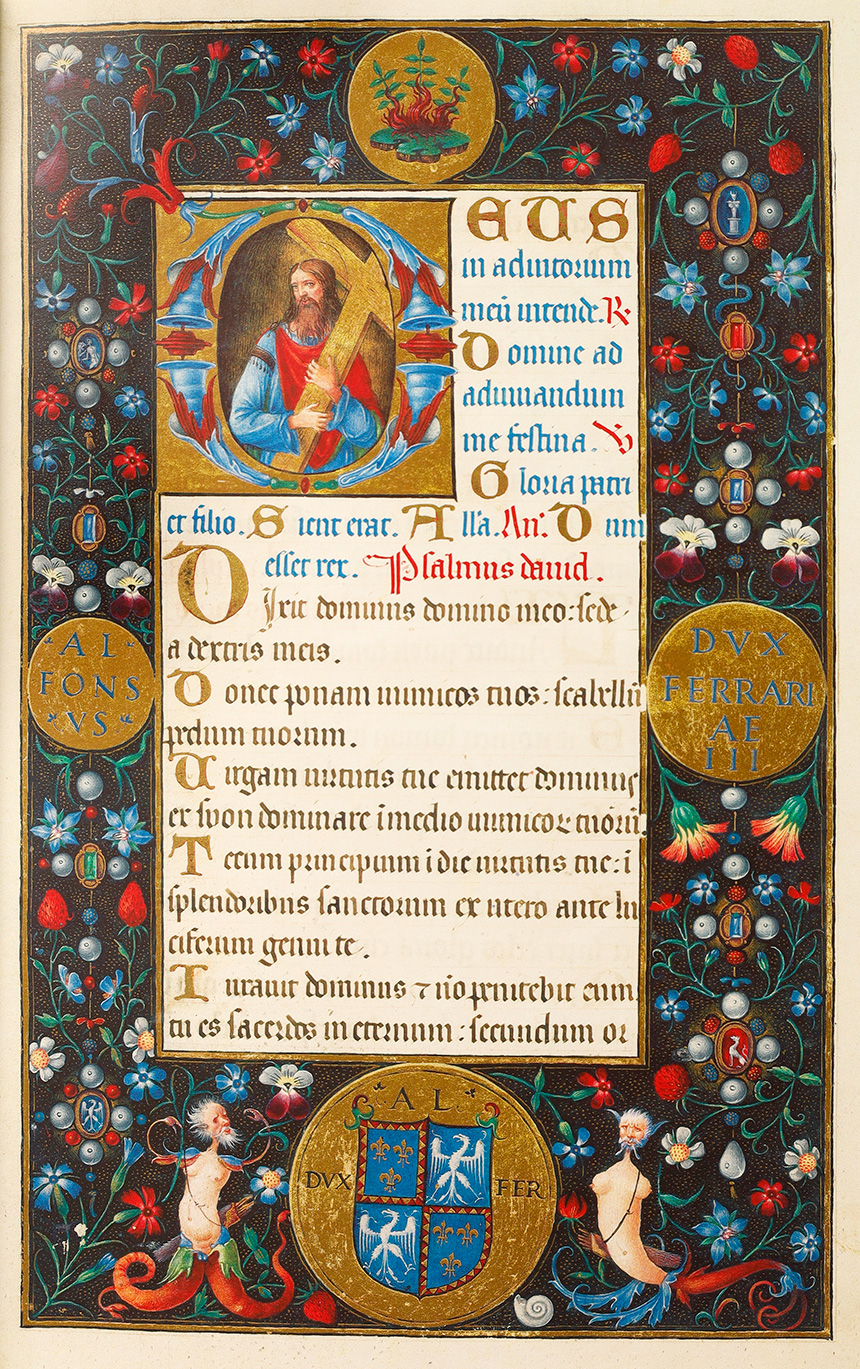 DEUS
in adiutorium
meū intende. R.
Domine ad
adiuuandum
me festina. V
Gloria patri
et filio. Sicut erat. Alla. An. Dum
esset rex. Psalmus dauid.
Dixit dominus domino meo: sede
a dextris meis.
Donec ponam inimicos tuos: scabellū
pedum tuorum.
Uirgam uirtutis tue emittet dominus
ex syon dominare ī medio inimicoꝝ tuoꝝū.
Tecum principium ī die uirtutis tue: ī
splendoribus sanctorum ex utero ante lu
ciferum genui te.
Iurauit dominus ⁊ nō penitebit eum
tu es sacerdos in eternum: secundum or
AL
FONS
VS
DVX
FERRARI
AE
III
AL
DVX FER